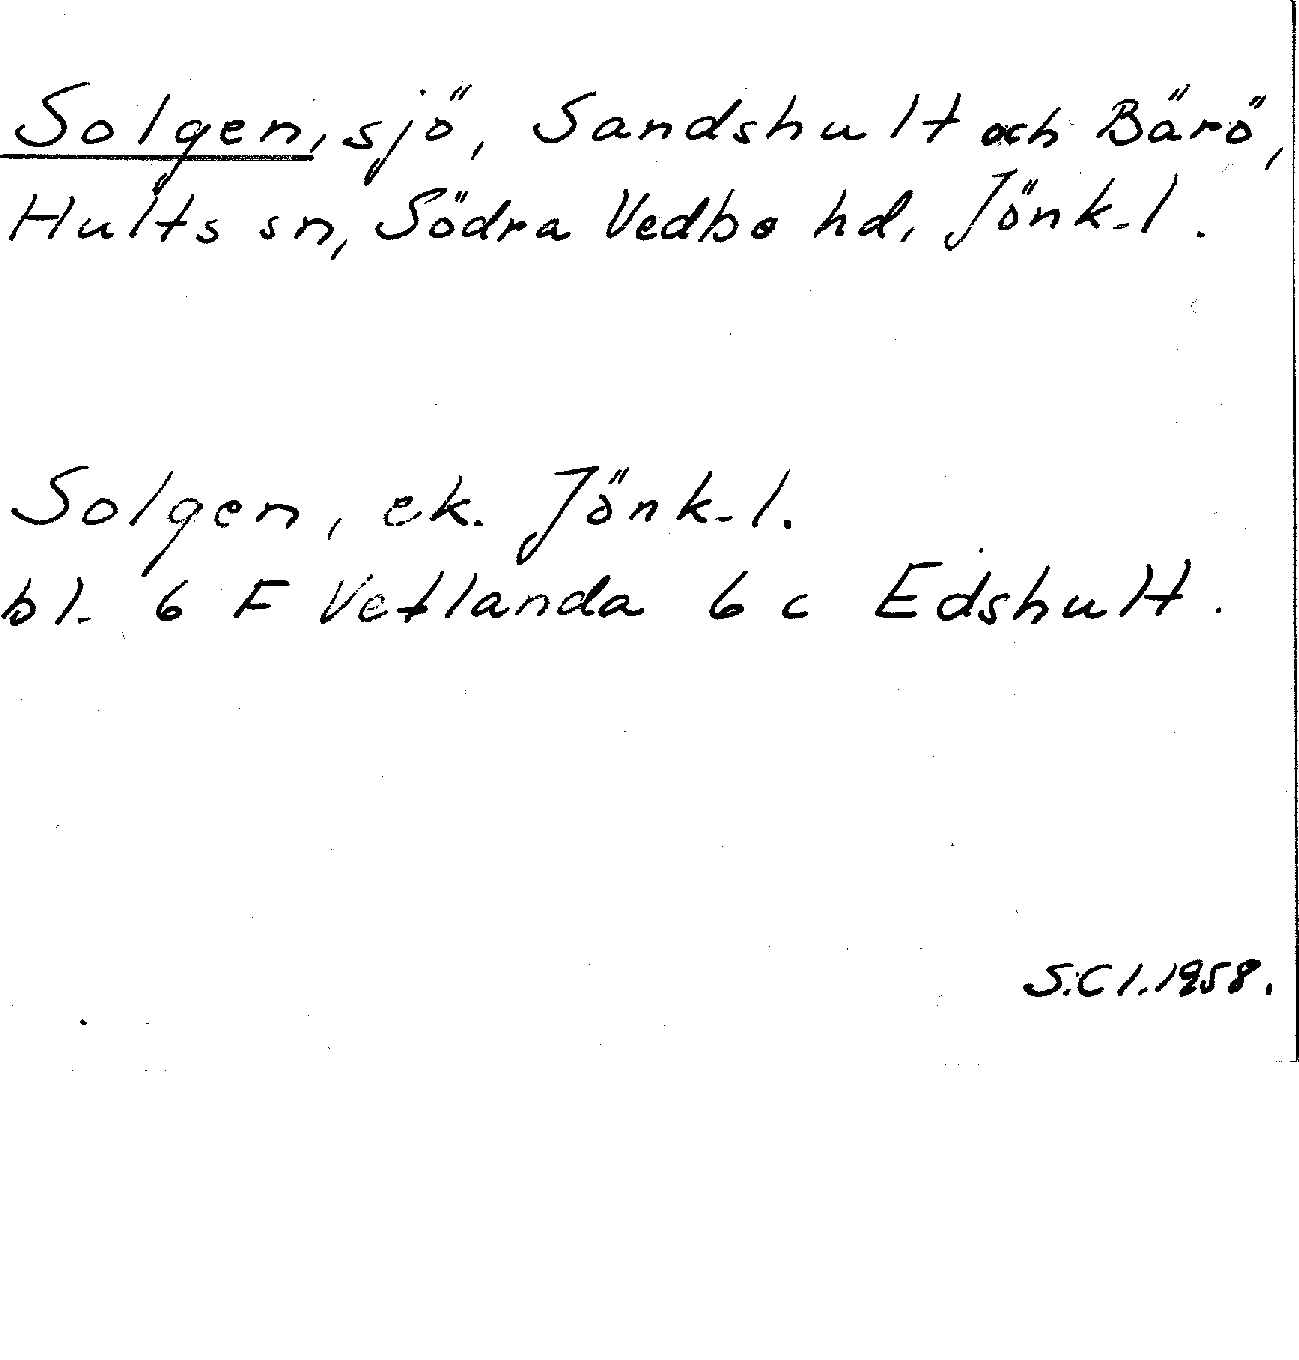 Solgen, sjö, Sandshult och Bärö,
Hults sn, Södra Vedbo hd, Jönk.l.
Solgen, ek. Jönk.l.
bl. 6 F Vetlanda 6 c Edshult.
S.C l. 1958.